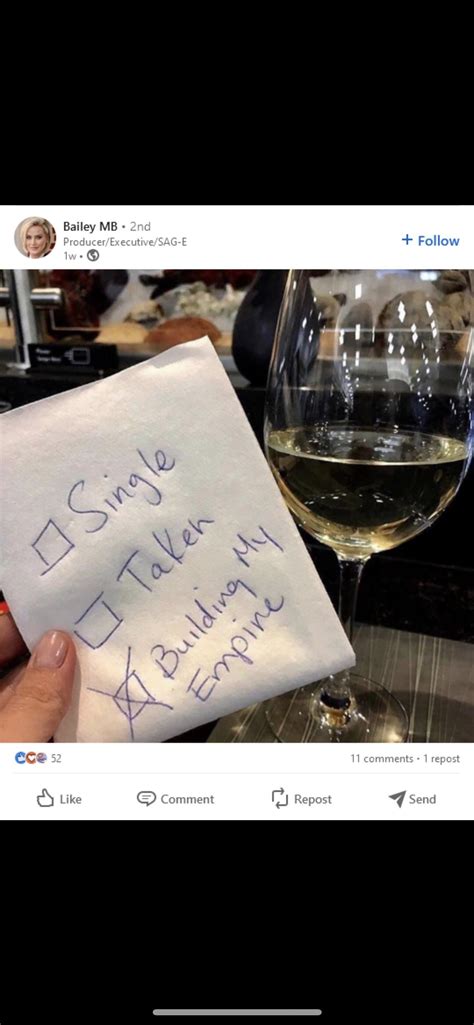 Bailey MB • 2nd
Producer/Executive/SAG-E
1w •
+ Follow
Single
Taken
Building My
Empire
52
11 comments • 1 repost
Like
Comment
Repost
Send